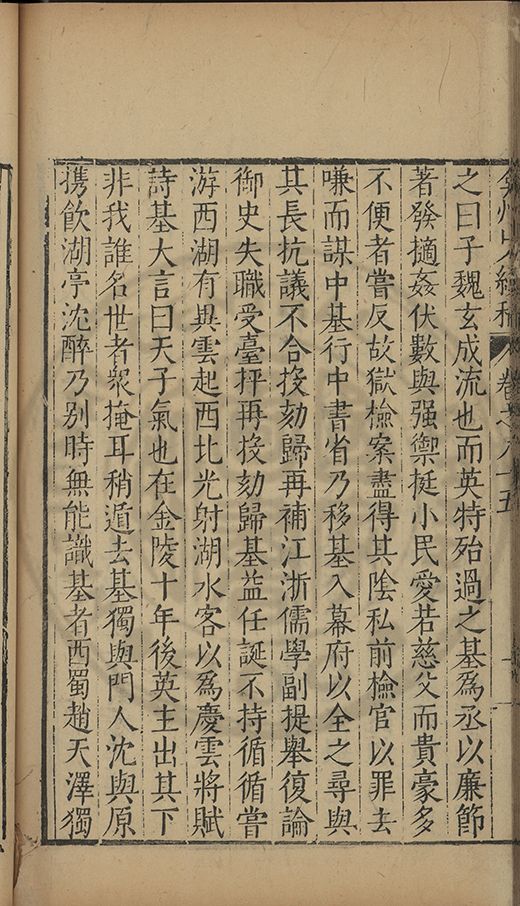 弇州史續稿 卷之八十五
之曰子魏玄成流也而英特殆過之基爲丞以廉節
著發擿姦伏數與强禦挺小民愛若慈父而貴豪多
不便者嘗反故獄檢案盡得其陰私前檢官以罪去
嗛而謀中基行中書省乃移基入幕府以全之尋與
其長抗議不合投劾歸再補江浙儒學副提舉復論
御史失職受臺抨再投劾歸基益任誕不持循循嘗
游西湖有異雲起西北光射湖水客以爲慶雲將賦
詩基大言曰天子氣也在金陵十年後英主出其下
非我誰名世者衆掩耳稍遁去基獨與門人沈與原
携飲湖亭沈醉乃別時無能識基者西蜀趙天澤獨